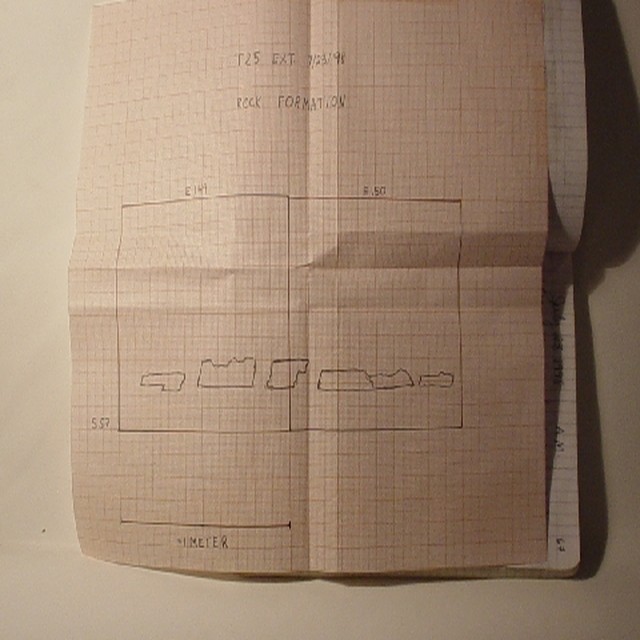 T25 EXT 7/23/98
ROCK FORMATION
E149 E.50
S57
1 METER